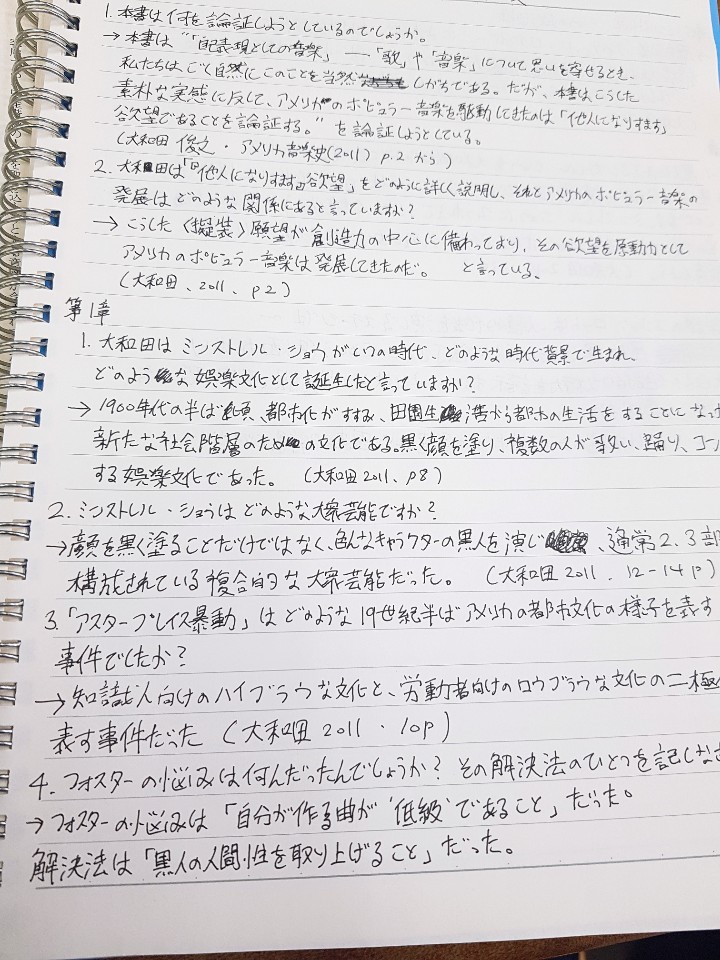 1. 本書は何を論証しようとしているのでしょうか。
→ 本書は“「自己表現としての音楽」―「歌」や「音楽」について思いを寄せるとき、
私たちはごく自然にこのことを当然 しがちである。だが、本書はこうした
素朴な実感に反して、アメリカのポピュラー音楽を駆動してきたのは「他人になりすます」
欲望であることを論証する。”を論証しようとしている。
(大和田 俊之・アメリカ音楽史(2011) p.2 から)
2. 大和田は「『他人になりすます』欲望」をどのように詳しく説明し、それとアメリカのポピュラー音楽の
発展はどのような関係にあると言っていますか?
→ こうした〈擬装〉願望が創造力の中心に備わっており、その欲望を原動力として
アメリカのポピュラー音楽は発展してきたのだ。 と言っている、
(大和田、2011、p2)
第1章
1. 大和田はミンストレル・ショウがいつの時代、どのような時代背景で生まれ、
どのような娯楽文化として誕生したと言っていますか?
→ 1900年代の半ば頃、都市化がすすみ、田園生活から都市の生活をすることになっ
新たな社会階層のための文化である。黒く顔を塗り、複数の人が歌い、踊り、コン
する娯楽文化であった。 (大和田2011、p8)
2. ミンストレル・ショウはどのような大衆芸能ですか?
→顔を黒く塗ることだけではなく、色んなキャラクターの黒人を演じ 、通常2、3部
構成されている複合的な大衆芸能だった。 (大和田2011、12-14p)
3. 「アスタープレイス暴動」はどのような19世紀半ばアメリカの都市文化の様子を表す
事件でしたか?
→知識人向けのハイブラウな文化と、労働者向けのロウブラウな文化の二極
表す事件だった (大和田2011・10p)
4. フォスターの悩みは何んだったんでしょうか? その解決法のひとつを記しなさ
→ フォスターの悩みは「自分が作る曲が‘低級’であること」だった。
解決法は「黒人の人間性を取り上げること」だった。